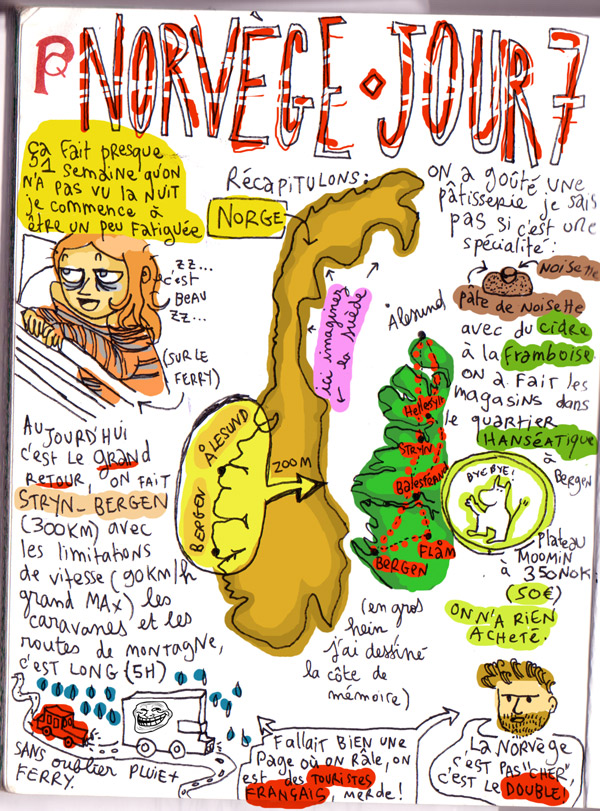 PQ
NORVÈGE • JOUR 7
ça fait presque
1 semaine qu'on
n'a pas vu la nuit
je commence à
être un peu fatiguée
zz...
c'est
BEAU
zz...
(SUR LE
FERRY)
Récapitulons:
NORGE
ici imaginez
la suède
ÅLESUND
BERGEN
ZOOM
on a goûté une
pâtisserie je sais
pas si c'est une
spécialité:
NOISETTE
pâte de NOISETTE
avec du cidre
à la framboise
on a fait les
magasins dans
le quartier
HANSÉATIQUE
à
Bergen
Ålesund
Hellesylt
STRYN
Balestrand
FLÅM
BERGEN
BYE BYE!
Plateau
MOOMIN
à 350NOK
(50€)
ON N'A RIEN
ACHETÉ.
AUJOURD'HUI
c'est le grand
RETOUR, ON fait
STRYN-BERGEN
(300KM) avec
les limitations
de vitesse (90KM/h
grand MAX) les
caravanes et les
routes de montagne,
c'EST LONG (5H)
(en gros
hein
j'ai dessiné
la côte de
mémoire)
SANS oublier PLUIE+
FERRY.
Fallait BIEN UNE
Page où on Râle, on
est des TOURISTES
FRANÇAIS, merde!
La Norvège
c'est PAS "CHER",
C'est le DOUBLE!